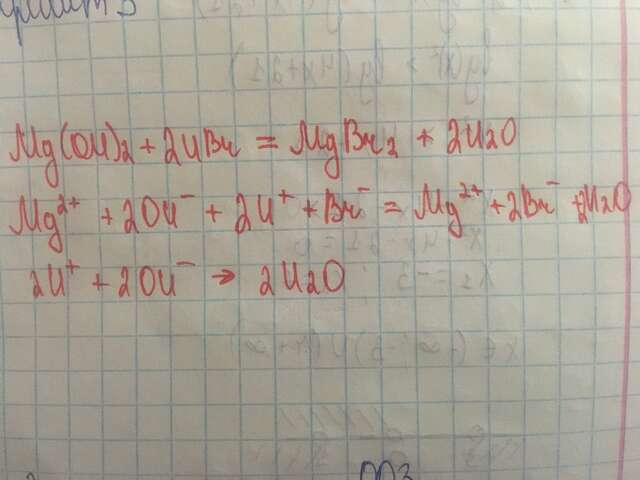 Mg(OH)₂ + 2HBr = MgBr₂ + 2H₂O
Mg²⁺ + 2OH⁻ + 2H⁺ + Br⁻ = Mg²⁺ + 2Br⁻ + 2H₂O
2H⁺ + 2OH⁻ → 2H₂O